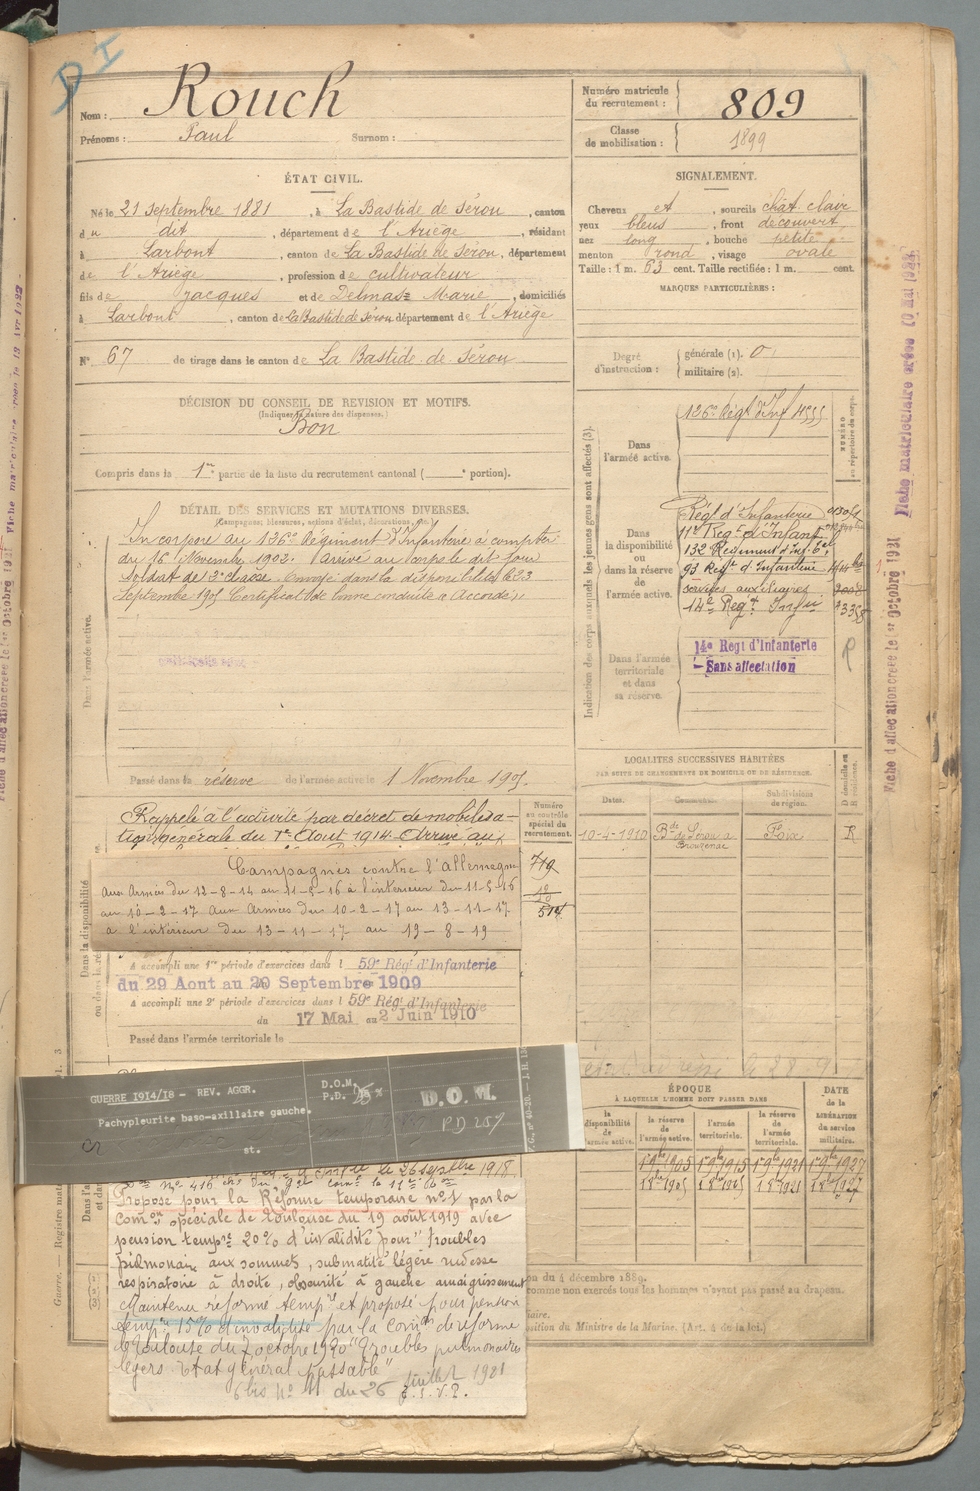 D I
Nom : Rouch
Prénoms : Paul Surnom :
Numéro matricule du recrutement : 809
Classe de mobilisation : 1899
ÉTAT CIVIL.
Né le 21 Septembre 1881, à La Bastide de Sérou, canton
du dit, département de l'Ariège, résidant
à Larbont, canton de La Bastide de Sérou, département
de l'Ariège, profession de cultivateur
fils de Jacques et de Delmas Marie, domiciliés
à Larbont, canton de La Bastide de Sérou département de l'Ariège
N° 67 de tirage dans le canton de La Bastide de Sérou
SIGNALEMENT.
Cheveux et, sourcils chât. clair
yeux bleus, front découvert,
nez long, bouche petite
menton rond, visage ovale
Taille : 1 m. 63 cent. Taille rectifiée : 1 m. cent.
MARQUES PARTICULIÈRES :
Degré d'instruction : générale (1). 0
militaire (2).
DÉCISION DU CONSEIL DE REVISION ET MOTIFS.
(Indiquer la nature des dispenses.)
Bon
Compris dans la 1re partie de la liste du recrutement cantonal ( e portion).
DÉTAIL DES SERVICES ET MUTATIONS DIVERSES.
(Campagnes, blessures, actions d'éclat, décorations, etc.)
Incorporé au 126e Régiment d'Infanterie à compter
du 16 Novembre 1902. Arrivé au corps le dit jour
Soldat de 2e classe. Envoyé dans la disponibilité le 23
Septembre 1905 Certificat de bonne conduite "Accordé".
Dans l'armée active.
Passé dans la réserve de l'armée active le 1 Novembre 1905.
Indication des corps auxquels les jeunes gens sont affectés (3).
NUMÉRO au répertoire du corps.
Dans l'armée active.
126e Régt d'Inf 4555
Dans la disponibilité ou dans la réserve de l'armée active.
Régt d'Infanterie
11e Regt d'Infant
132 Régiment d'Inf.
93 Regt d'Infanterie
services auxiliaires
14e Regt Infie
Dans l'armée territoriale et dans sa réserve.
14e Regt d'Infanterie
- Sans affectation
R
Fiche matriculaire créée 10 Mai 1923
Fiche d'affectation créée le 1er Octobre 1921
LOCALITÉS SUCCESSIVES HABITÉES
PAR SUITE DE CHANGEMENTS DE DOMICILE OU DE RÉSIDENCE.
Dates. Communes. Subdivisions de région. D domicile ou R résidence.
10-4-1910 Bde de Sérou à Brouzenac Foix R
Rappelé à l'activité par décret de mobilisa-
tion générale du 1er Août 1914. Arrivé au
Numéro au contrôle spécial du recrutement.
719
514
Campagnes contre l'Allemagne
aux Armées du 12-8-14 au 11-5-16 à l'intérieur du 11-5-16
au 10-2-17 aux Armées du 10-2-17 au 13-11-17
à l'intérieur du 13-11-17 au 19-8-19
A accompli une 1re période d'exercices dans l 59e Régt d'Infanterie
du 29 Aout au 20 Septembre 1909
A accompli une 2e période d'exercices dans l 59e Régt d'Infanterie
du 17 Mai au 2 Juin 1910
Passé dans l'armée territoriale le
GUERRE 1914/18 - REV. AGGR.
Pachypleurite baso-axillaire gauche.
st.
D.O.M.
P.D. %
D.O.M.
PD 25%
ÉPOQUE
À LAQUELLE L'HOMME DOIT PASSER DANS
la disponibilité de l'armée active. la réserve de l'armée active. l'armée territoriale. la réserve de l'armée territoriale.
DATE de la LIBÉRATION du service militaire.
1 9bre 1905 1 9bre 1915 1 9bre 1921 1 9bre 1927
le 26 septbre 1918.
Proposé pour la Réforme temporaire n° 1 par la
Comon spéciale de Toulouse du 19 août 1919 avec
pension tempre 20% d'invalidité pour "troubles
pulmonaires aux sommets, submatité légère rudesse
respiratoire à droite, obscurité à gauche amaigrissement
Maintenu réformé tempre et proposé pour pension
tempre 15% d'invalidité par la Comon de réforme
de Toulouse du 7 octobre 1920 "Troubles pulmonaires
légers. Etat général passable"
6 bis n° 11 du 26 juillet 1921
T.S.V.P.
on du 4 décembre 1889.
comme non exercés tous les hommes n'ayant pas passé au drapeau.
aire.
osition du Ministre de la Marine. (Art. 4 de la loi.)